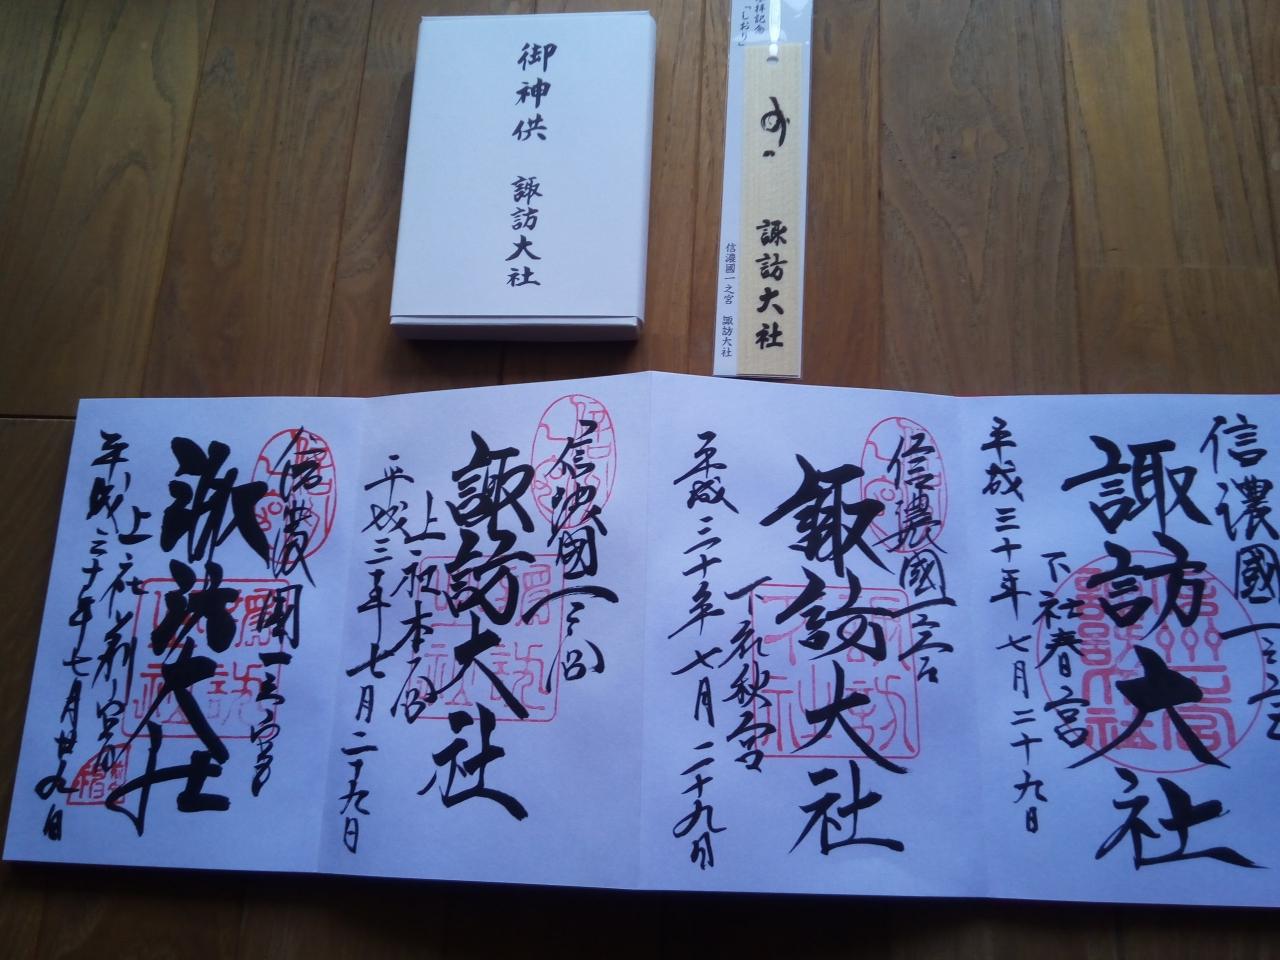 御神供
諏訪大社
拝記念
「しおり」
諏訪大社
信濃國一之宮 諏訪大社
信濃國一之宮
諏訪大社
下社春宮
平成三十年七月二十九日
信濃國一之宮
諏訪大社
下社秋宮
平成三十年七月二十九日
信濃國一之宮
諏訪大社
上社本宮
平成三十年七月二十九日
信濃國一之宮
諏訪大社
上社前宮
平成三十年七月廿九日